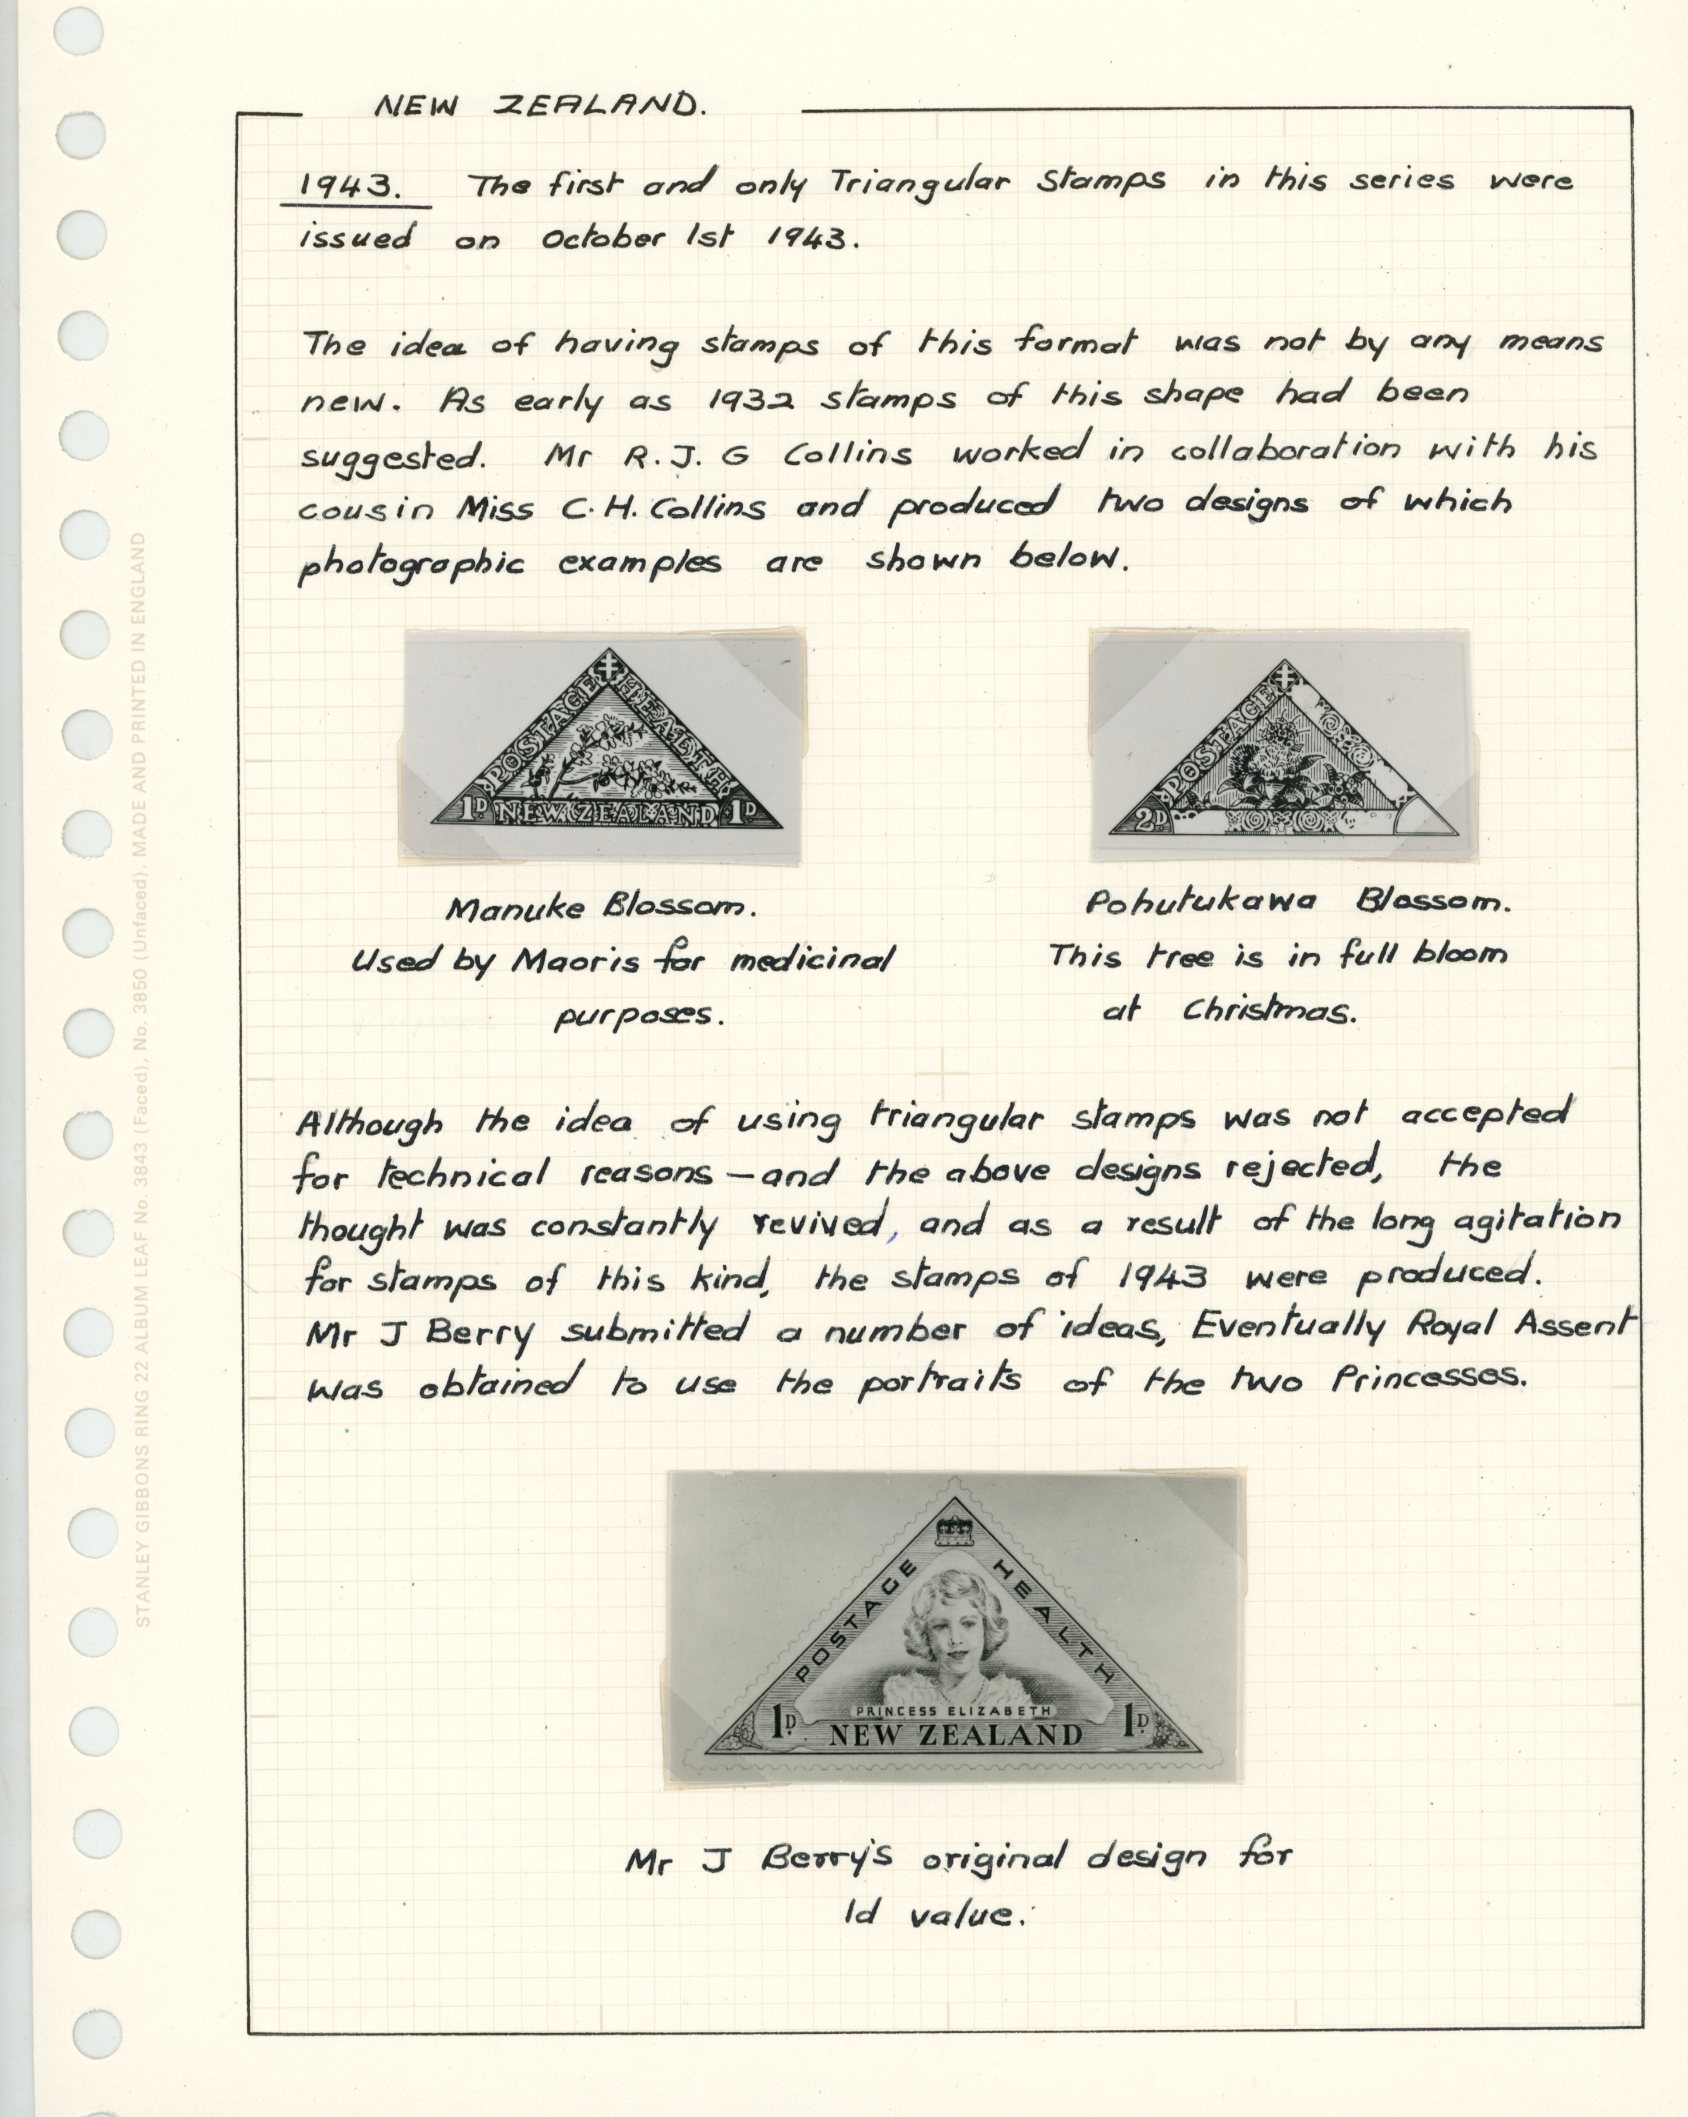 NEW ZEALAND.
1943. The first and only Triangular Stamps in this series were
issued on October 1st 1943.
The idea of having stamps of this format was not by any means
new. As early as 1932 stamps of this shape had been
suggested. Mr R.J.G Collins worked in collaboration with his
cousin Miss C.H. Collins and produced two designs of which
photographic examples are shown below.
POSTAGE HEALTH
1D NEW ZEALAND 1D
POSTAGE
2D
Manuke Blossom.
Used by Maoris for medicinal
purposes.
Pohutukawa Blossom.
This tree is in full bloom
at Christmas.
Although the idea of using triangular stamps was not accepted
for technical reasons – and the above designs rejected, the
thought was constantly revived, and as a result of the long agitation
for stamps of this kind, the stamps of 1943 were produced.
Mr J Berry submitted a number of ideas, Eventually Royal Assent
was obtained to use the portraits of the two Princesses.
POSTAGE HEALTH
PRINCESS ELIZABETH
1D. NEW ZEALAND 1D.
Mr J Berry's original design for
1d value.
STANLEY GIBBONS RING 22 ALBUM LEAF No. 3843 (Faced), No. 3850 (Unfaced). MADE AND PRINTED IN ENGLAND